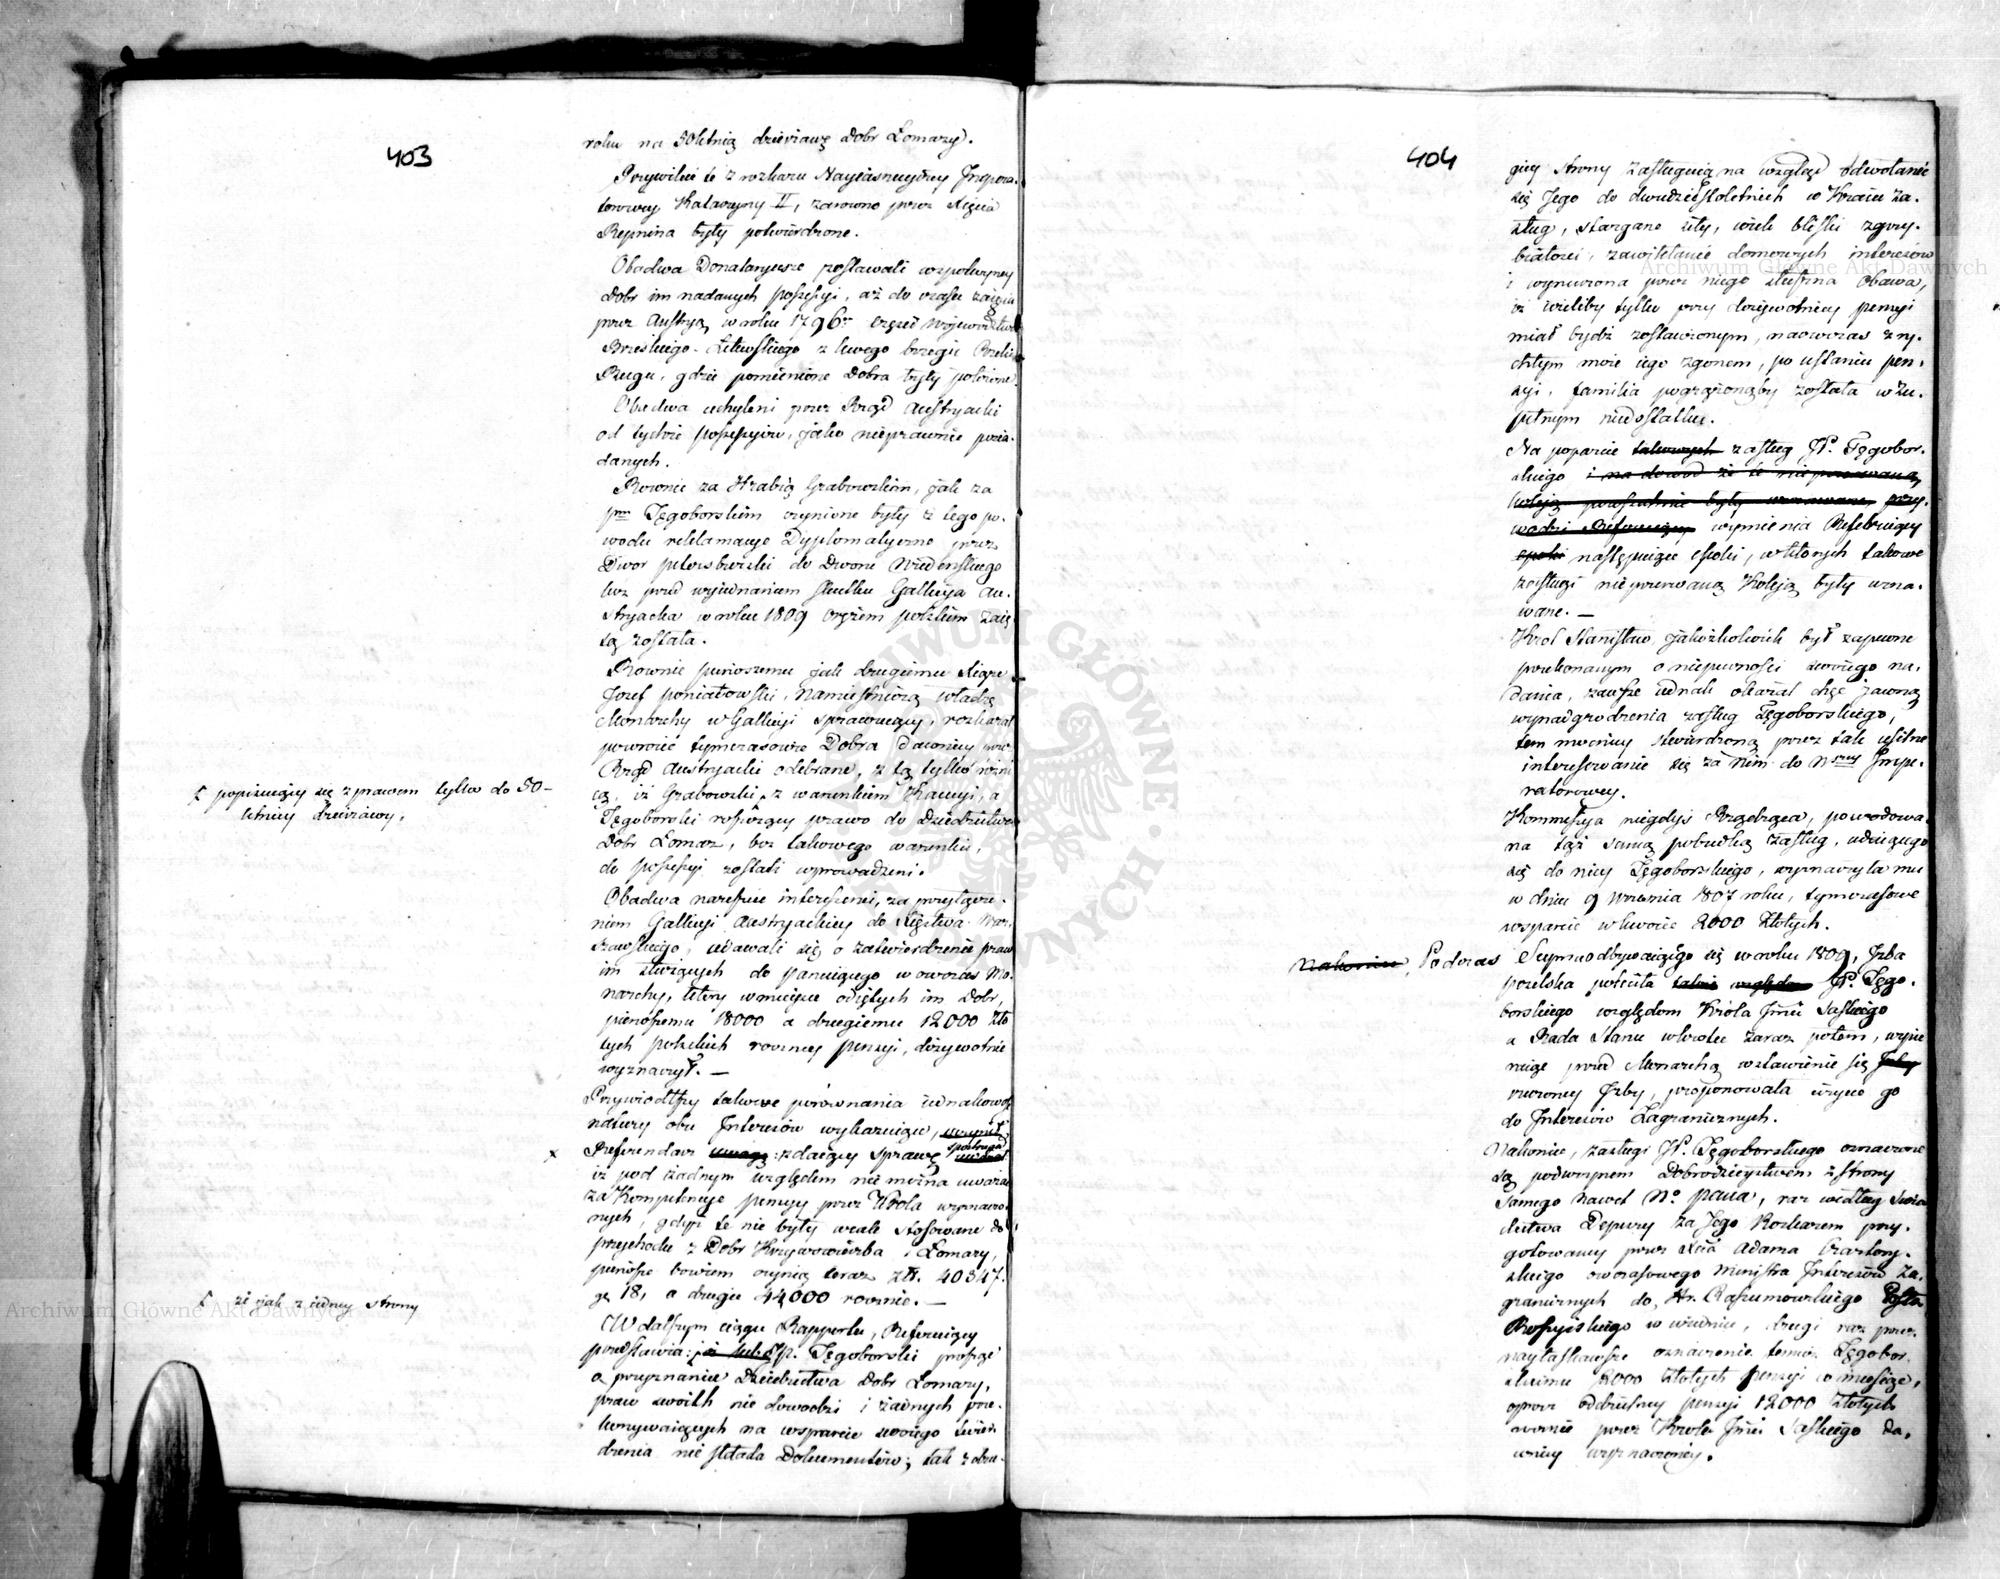 403
roku na 50letnią dzierżawę Dobr Łomazy.
Przywileie te z rozkazu Nayiaśnieyszey Impera-
torowey Katarzyny II, zarowno przez Xięcia
Repnina były potwierdzone.
Obadwa Donataryusze zostawali w spokoyney
Dobr im nadanych possessyi, aż do czasu zaięcia
przez Austryą w roku 1796m części Woiewództwa
Brzeskiego-Litewskiego z lewego brzegu Rzeki
Bugu, gdzie pomienione Dobra były położone.
Obadwa uchyleni przez Rząd Austryacki
od tychże possessyiow, jako nieprawnie posia-
danych.
Rownie za Hrabią Grabowskim, jak za
pm Tęgoborskim czynione były z tego po-
wodu reklamacye Dyplomatyczne przez
Dwor petersburski do Dworu Wiedeńskiego
lecz przed wyiednaniem skutku Gallicya Au-
stryacka w roku 1809 orężem polskim zaię-
tą została.
Rownie pierwszemu jak drugiemu Xiąże
Jozef Poniatowski, Namiestniczą władzę
Monarchy w Gallicyi sprawuiący, rozkazał
powrocić tymczasowie Dobra dawniey przez
Rząd Austryacki odebrane, z tą tylko różni-
cą, iż Grabowski, z warunkiem Kaucyi, a
Tęgoborski roszcząc prawo do Dziedzictwa
Dobr Łomaz, bez takowego warunku,
do possessyi zostali wprowadzeni.
ſ popieraiący się z prawem tylko do 50-
letniey dzierżawy.
Obadwa nareszcie interessenci, za przyłącze-
niem Gallicyi Austryackiey do Xięstwa War-
szawskiego, udawali się o zatwierdzenie praw
im służących do panuiącego wowczas Mo-
narchy, ktory w mieysce odiętych im Dobr,
pierwszemu 18000 a drugiemu 12000 zło-
tych polskich roczney pensyi, dożywotnie
wyznaczył. —
Przywiodłszy takowe porównania iednakowość
natury obu Interesów wykazuiące,
x Referendarz uwagę zdaiący sprawę
iż pod żadnym względem nie można uważać
za Kompetencye pensyy przez Króla wyznaczo-
nych, gdyż te nie były wcale stosowane do
przychodu z Dobr Krzywowierzba i Łomazy,
pierwsze bowiem czynią teraz zł. 40347.
gr 18, a drugie 44000 rocznie. —
W dalszym ciągu Rapportu, Referuiący
przedstawia: JP. Tęgoborski prosząc
ſ że jak z iedney strony
o przyznanie Dziedzictwa Dobr Łomazy,
praw swoich nie dowodzi i żadnych prze-
konywaiących na wsparcie swoiego twier-
dzenia nie składa Dokumentów; tak z dru-
404
giey strony zasługuią na wzgląd odwołanie
się Jego do dwudziestoletnich w Kraiu za-
sług, stargane siły, wiek bliski zgrzy-
białości, zawikłanie domowych interesów
i wynurzona przez niego słuszna obawa,
iż ieżeliby tylko przy dożywotniey pensyi
miał bydź zostawionym, naowczas z ry-
chłym może iego zgonem, po ustaniu pen-
syi, familia pogrążonąby została w zu-
pełnym niedostatku.
Na poparcie takowych zasług JP. Tęgobor-
skiego i na dowod że te nieprzerwaną
koleją powszechnie były uznawane, przy-
wodzi Referuiący wymienia Referuiący
epoki następuiące epoki, w ktorych takowe
zasługi nieprzerwaną koleją były uzna-
wane. —
Krol Stanisław jakożkolwiek był zapewne
przekonanym o niepewności swoiego na-
dania, zawsze iednak okazał chęć jawną
wynadgrodzenia zasług Tęgoborskiego,
tem mocniey stwierdzoną przez tak usilne
interesowanie się za nim do Nszey Impe-
ratorowey.
Kommissya niegdyś Rządząca, powodowa-
na tąż samą pobudką zasług, udaiącego
się do niey Tęgoborskiego, wyznaczyła mu
w dniu 9 Września 1807 roku, tymczasowe
wsparcie w kwocie 2000 Złotych.
Nakoniec, Podczas Seymu odbywaiącego się w roku 1809, Izba
poselska poleciła JP. Tęgo-
borskiego względom Króla Jmci Saskiego
a Rada Stanu wkrotce zaraz potem,
przed Monarchą wstawienie się Izby
rzeczoney Izby, proponowała użycie go
do Interesów Zagranicznych.
Nakoniec, zasługi JP. Tęgoborskiego oznaczone
są podwoynem Dobrodzieystwem z strony
samego nawet No pana, raz według świa-
dectwa Depeszy za Jego Rozkazem przy-
gotowaney przez Xcia Adama Czartory-
skiego owczasowego Ministra Interesów Za-
granicznych do Hr. Razumowskiego Posła
Rossyiskiego w Wiedniu, drugi raz przez
nayłaskawsze oznaczenie temuż Tęgobor-
skiemu 8000 złotych pensyi w miesiąc,
oprocz oddzielney pensyi 12000 Złotych
rocznie przez Króla Jmci Saskiego da-
wniey wyznaczoney.
Archiwum Główne Akt Dawnych
Archiwum Główne Akt Dawnych
ARCHIWUM GŁÓWNE AKT DAWNYCH